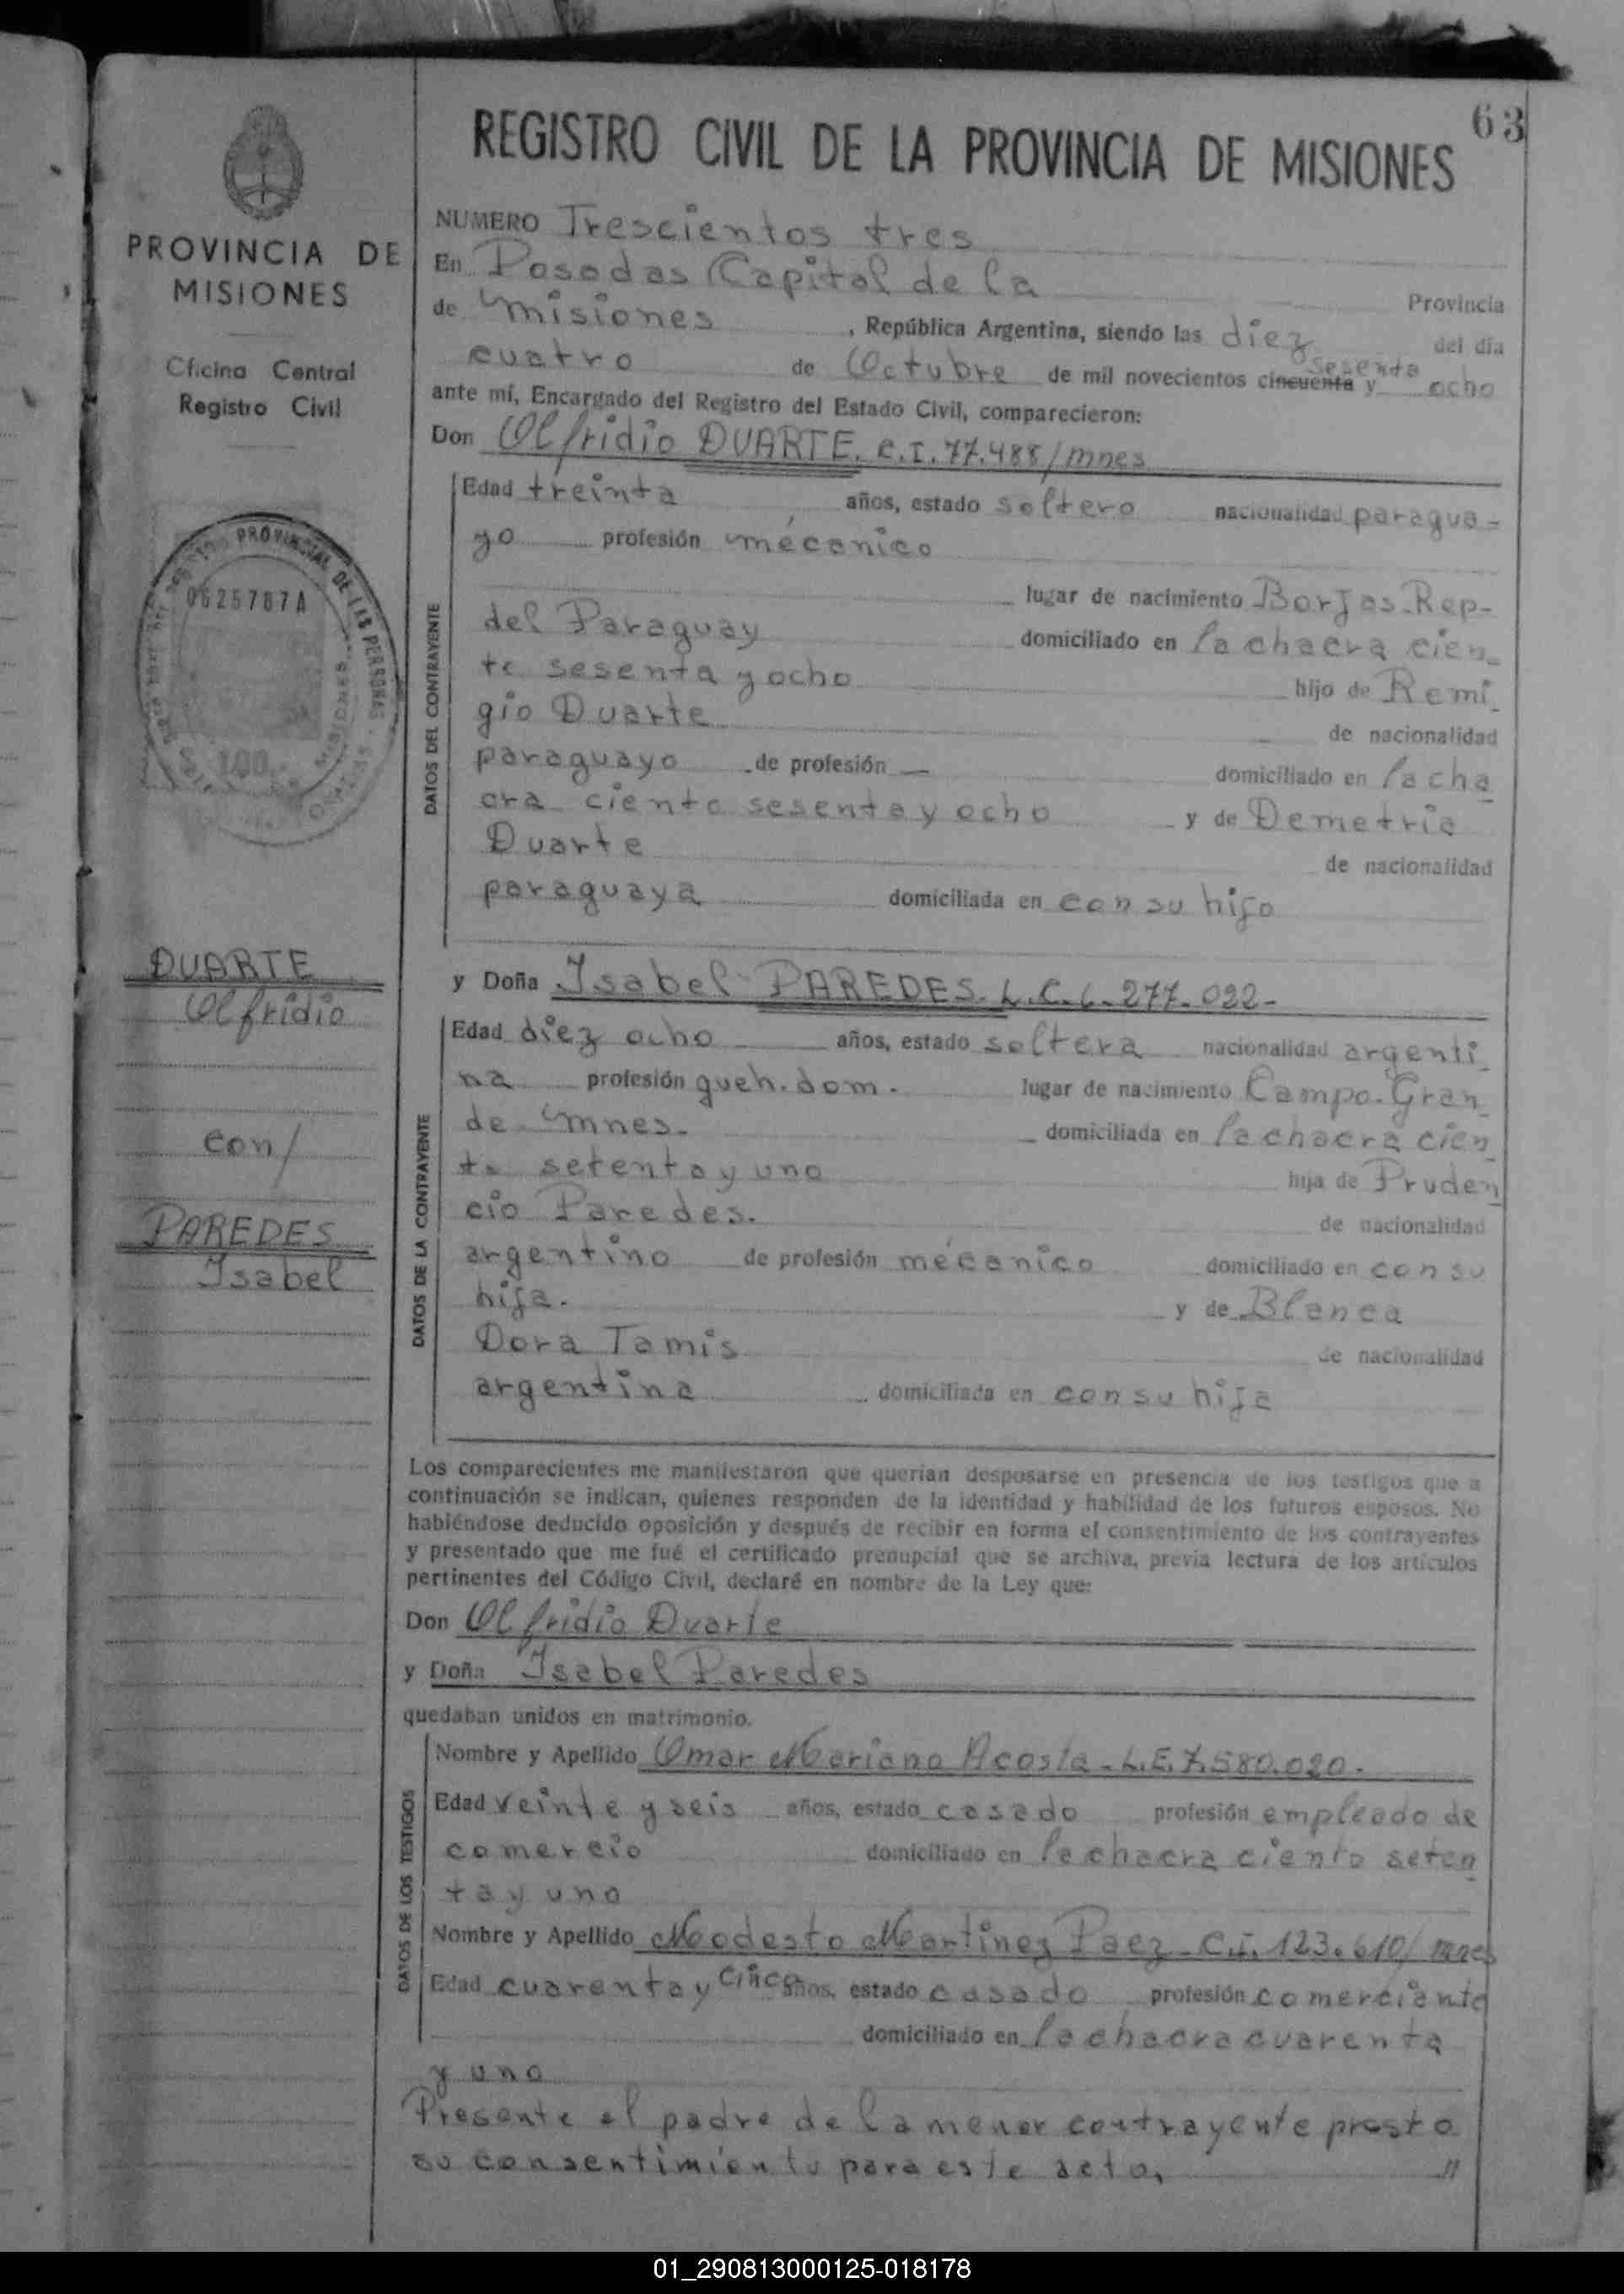 63
REGISTRO CIVIL DE LA PROVINCIA DE MISIONES
PROVINCIA DE
MISIONES
Oficina Central
Registro Civil
PROVINCIAL DE LAS PERSONAS
0625787A
MISIONES
100
DUARTE
Olfridio
con/
PAREDES
Isabel
NUMERO Trescientos tres
En Posadas Capital de la Provincia
de Misiones, República Argentina, siendo las diez del día
cuatro de Octubre de mil novecientos cincuenta sesenta y ocho
ante mí, Encargado del Registro del Estado Civil, comparecieron:
Don Olfridio DUARTE. C.I. 77.488/mnes
DATOS DEL CONTRAYENTE
Edad treinta años, estado soltero nacionalidad paragua-
yo profesión mecánico
lugar de nacimiento Borjas-Rep-
del Paraguay domiciliado en la chacra cien-
to sesenta y ocho hijo de Remi-
gio Duarte de nacionalidad
paraguayo de profesión — domiciliado en la cha
cra ciento sesenta y ocho y de Demetria
Duarte de nacionalidad
paraguaya domiciliada en con su hijo
y Doña Isabel PAREDES. L.C. 6.277.022-
DATOS DE LA CONTRAYENTE
Edad diez ocho años, estado soltera nacionalidad argenti-
na profesión queh. dom. lugar de nacimiento Campo-Gran-
de mnes- domiciliada en la chacra cien-
to setenta y uno hija de Pruden
cio Paredes. de nacionalidad
argentino de profesión mecánico domiciliado en con su
hija. y de Blanca
Dora Tamis de nacionalidad
argentina domiciliada en con su hija
Los comparecientes me manifestaron que querían desposarse en presencia de los testigos que a
continuación se indican, quienes responden de la identidad y habilidad de los futuros esposos. No
habiéndose deducido oposición y después de recibir en forma el consentimiento de los contrayentes
y presentado que me fué el certificado prenupcial que se archiva, previa lectura de los artículos
pertinentes del Código Civil, declaré en nombre de la Ley que:
Don Olfridio Duarte
y Doña Isabel Paredes
quedaban unidos en matrimonio.
DATOS DE LOS TESTIGOS
Nombre y Apellido Omar Mariano Acosta - L.E. 7.580.020.
Edad veinte y seis años, estado casado profesión empleado de
comercio domiciliado en la chacra ciento seten
ta y uno
Nombre y Apellido Modesto Martinez Paez - C.I. 123.610/mnes
Edad cuarenta y cinco años, estado casado profesión comerciante
domiciliado en la chacra cuarenta
y uno
Presente el padre de la menor contrayente presto
su consentimiento para este acto, //
01_290813000125-018178